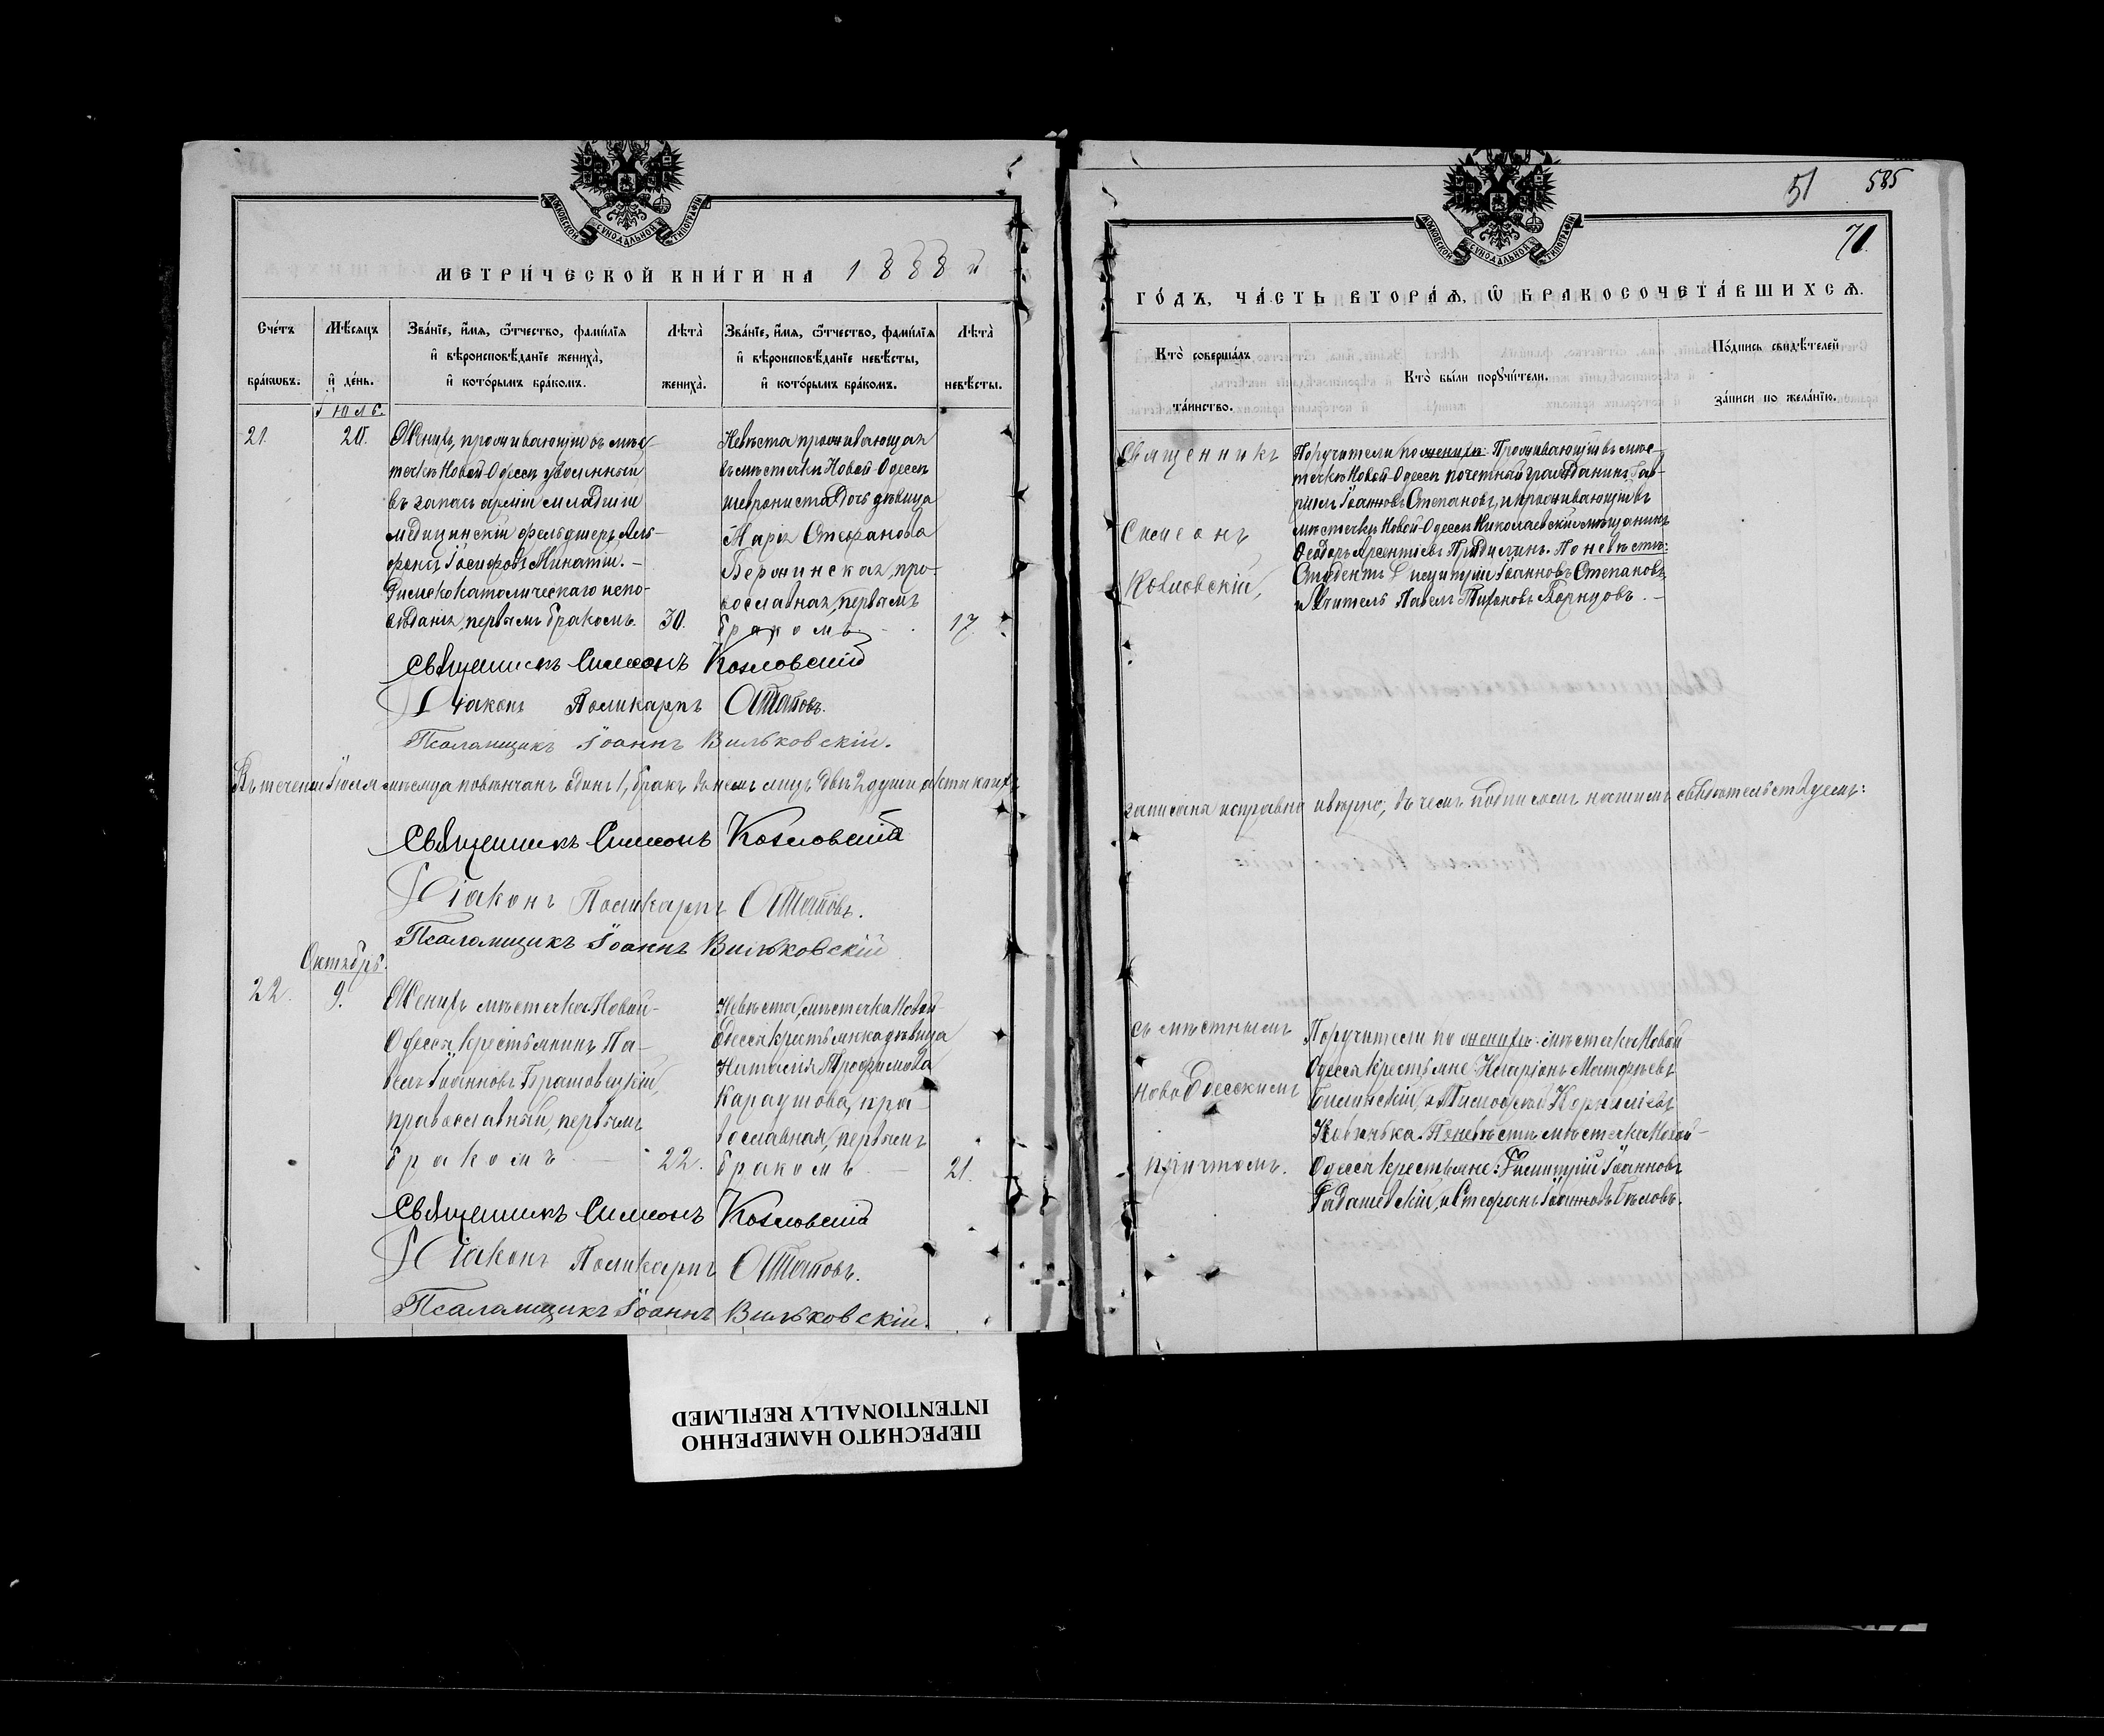 МЕТРИ́ЧЕСКОЙ КНИ́ГИ НА 1888 й
Сче́тъ бра́кѡвъ.
Мѣ́сяцъ и҆ де́нь.
Зва́нїе, и҆́мя, ѻ҆́тчество, фами́лїя
и҆ вѣроисповѣ́данїе жениха̀,
и҆ кото́рымъ бра́комъ.
Лѣта̀ жениха̀.
Зва́нїе, и҆́мя, ѻ҆́тчество, фами́лїя
и҆ вѣроисповѣ́данїе невѣ́сты,
и҆ кото́рымъ бра́комъ.
Лѣта̀ невѣ́сты.
Іюль.
21.
Женихъ, проживающій въ мѣс-
течкѣ Новой-Одессѣ уволенный
въ запасъ арміи младшій
медицинскій фельдшеръ Аль-
фонсъ Іосифовъ
Римскокатолическаго испо-
вѣданія, первымъ бракомъ.
30.
Невѣста проживающая
въ мѣстечкѣ Новой-Одессѣ
дочь дѣвица
Марія Стефанова
про-
вославная, первымъ
бракомъ.
17.
Священникъ Симеонъ Козловскій
Діаконъ Поликарпъ
Псаломщикъ Іоаннъ Вильковскій.
Въ теченіи Іюля мѣсяца повѣнчанъ одинъ 1, бракъ въ немъ лицъ двѣ 2 души акты коихъ
Священникъ Симеонъ Козловскій
Діаконъ Поликарпъ
Псаломщикъ Іоаннъ Вильковскій
Октябрь.
22.
9.
Женихъ мѣстечка Новой-
Одессы крестьянинъ Па-
велъ Іоанновъ
православный, первымъ
бракомъ
22.
Невѣста, мѣстечка Новой-
Одессы крестьянка дѣвица
Наталія Трофимова
Караушова, пра-
вославная, первымъ
бракомъ
21.
Священникъ Симеонъ Козловскій
Діаконъ Поликарпъ
Псаломщикъ Іоаннъ Вильковскій.
51 585
71.
ГО́ДЪ, ЧА́СТЬ ВТОРА́Ѧ, Ѽ БРАКОСОЧЕТА́ВШИХСѦ.
Кто̀ соверша́лъ
та́инство.
Кто̀ бы́ли порꙋчи́тели.
По́дпись свидѣ́телей
за́писи по жела́нїю.
Священникъ
Симеонъ
Козловскій,
Поручители по женихѣ: Проживающій въ мѣс-
течкѣ Новой-Одессѣ почетный гражданинъ Гав-
рiилъ Іоанновъ Степановъ, и проживающій въ
мѣстечкѣ Новой-Одессѣ Николаевскій мѣщанинъ
Ѳеодоръ Арсентіевъ По невѣстѣ:
Студентъ Іоанновъ Степановъ,
и Учитель Павелъ Тихоновъ
записаны исправно и вѣрно, въ чемъ подписомъ нашимъ свидѣтельствуемъ:
съ мѣстнымъ
НовоОдесскимъ
причтомъ.
Поручители по женихѣ: мѣстечка Новой
Одессы крестьяне: Иларіонъ Матфѣевъ
Билинскій, и Тимофей Корниліевъ
По невѣстѣ мѣстечка Новой-
Одессы крестьяне: Іоанновъ
и Стефанъ Іоанновъ Бѣловъ.
ПЕРЕСНЯТО НАМЕРЕННО
INTENTIONALLY REFILMED